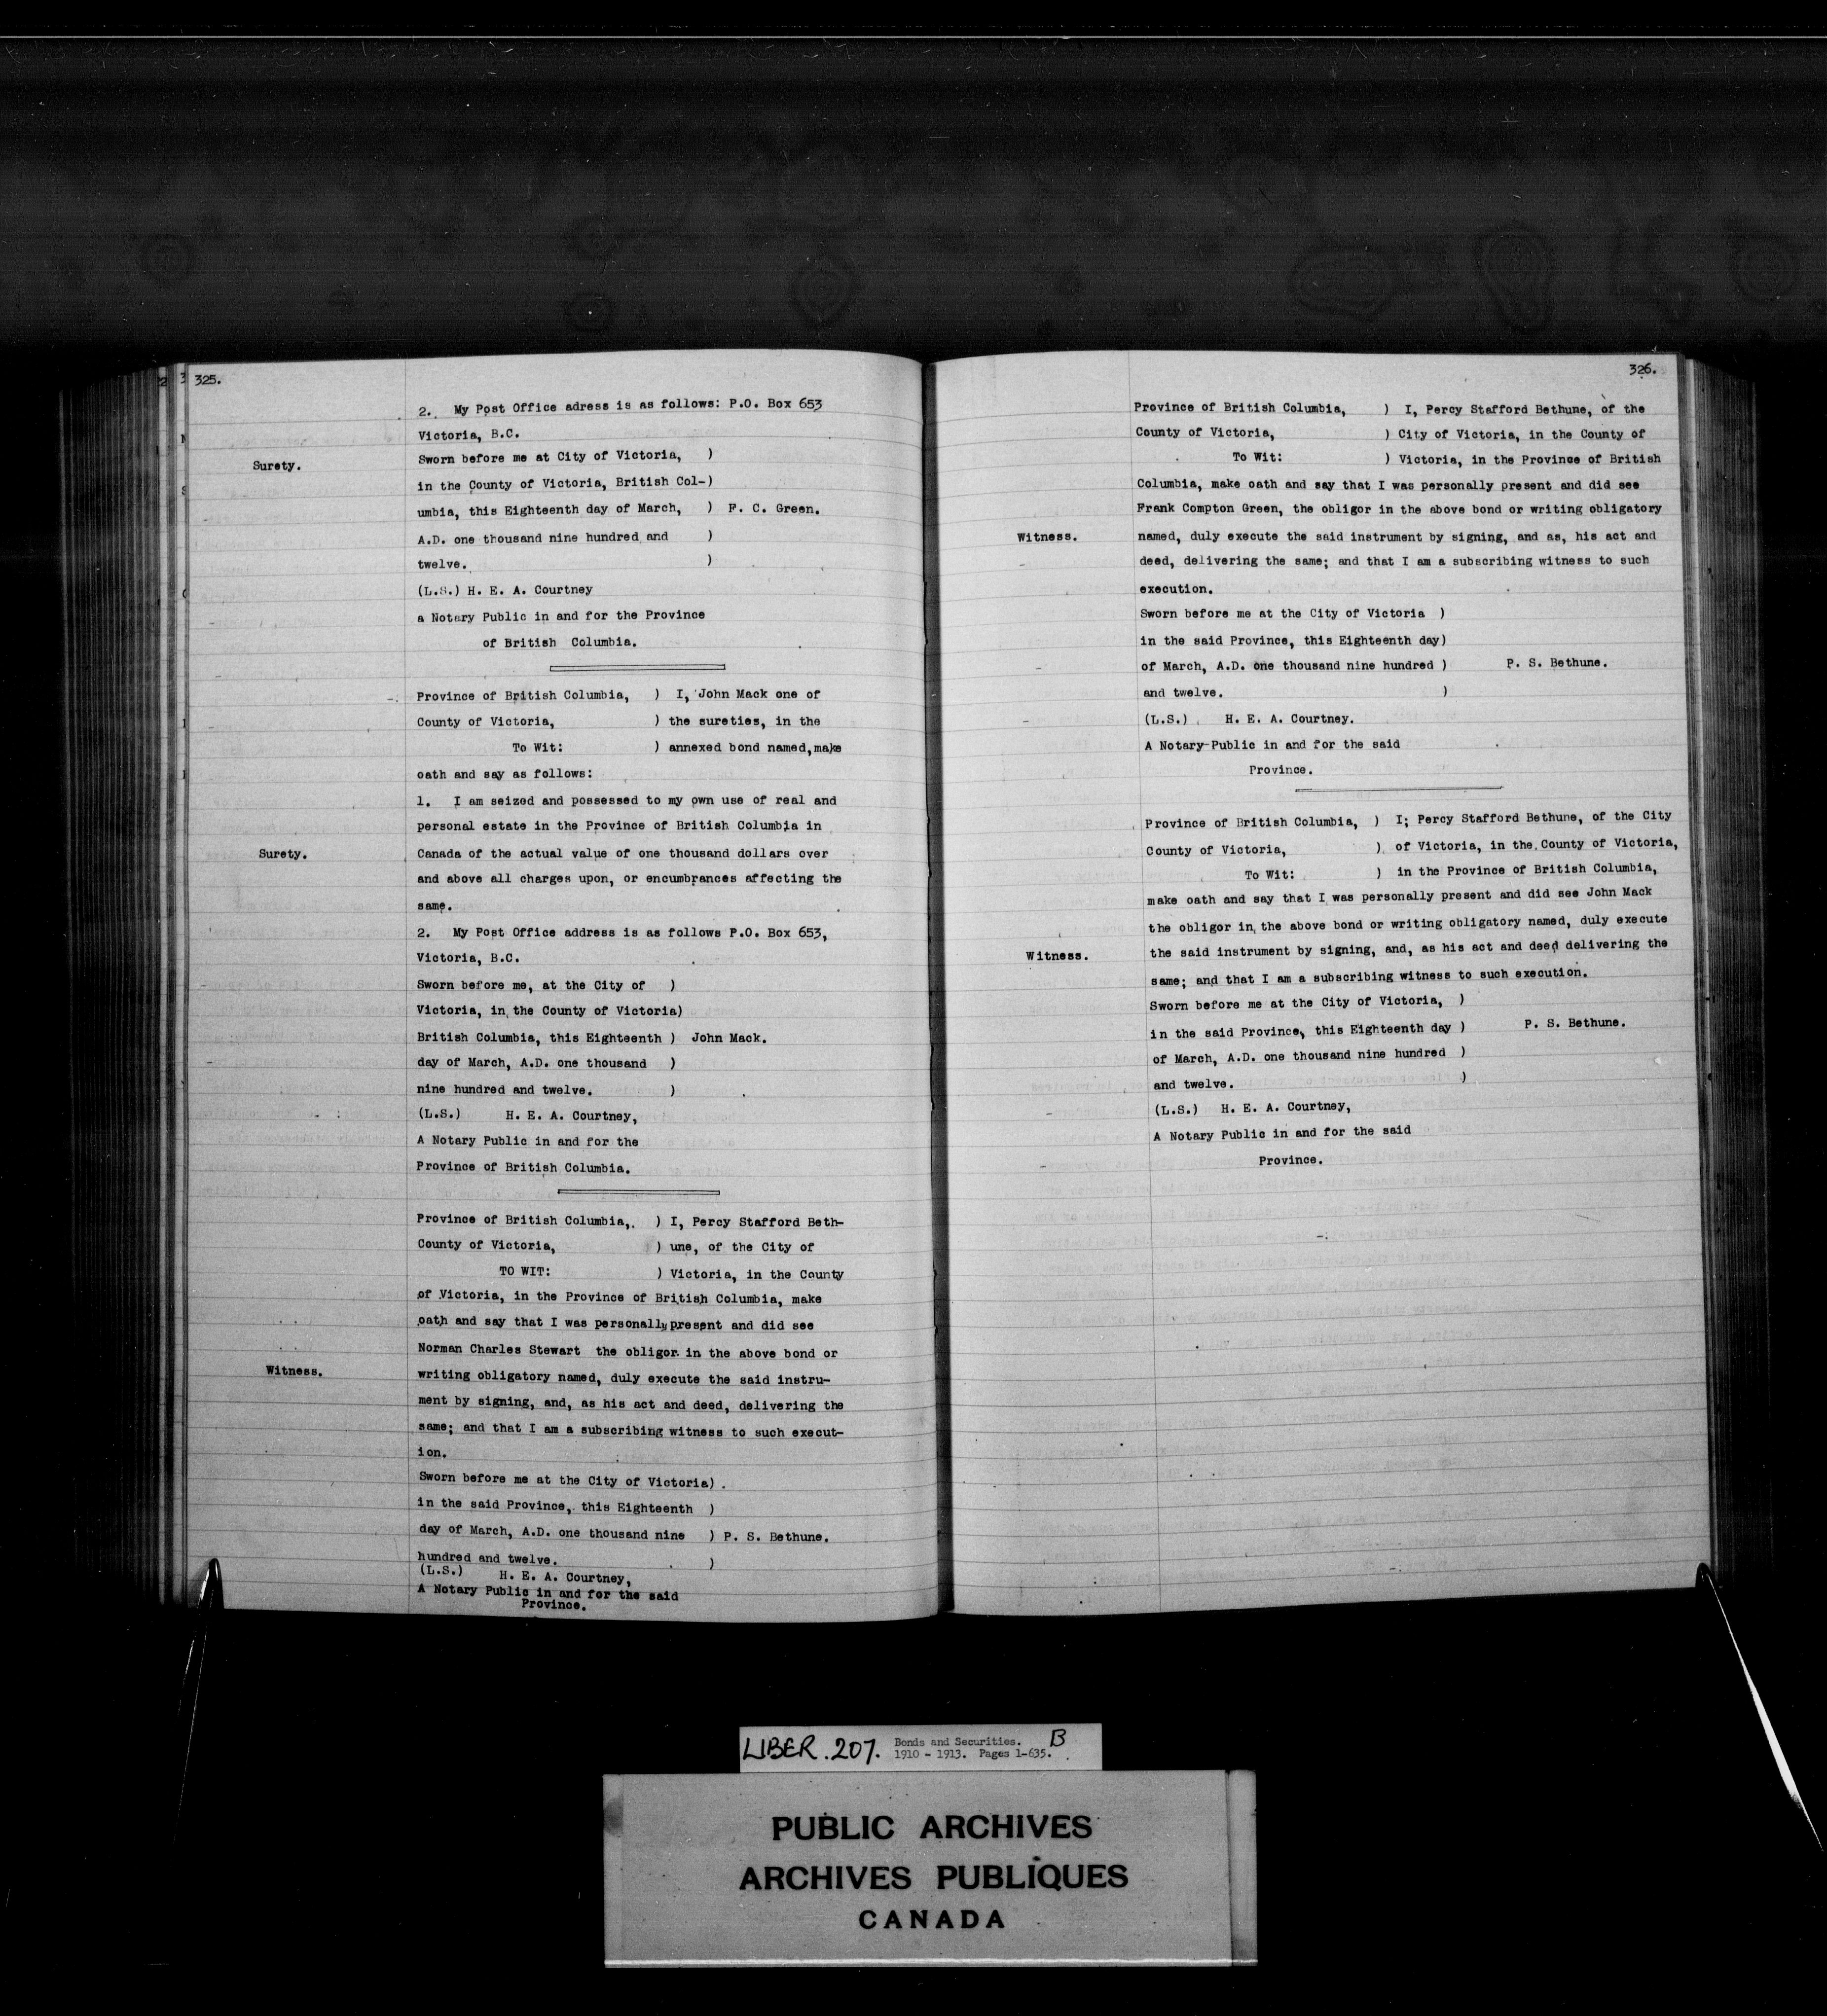 325.
2. My Post Office adress is as follows: P.O. Box 653
Victoria, B.C.
Surety.
Sworn before me at City of Victoria, )
in the County of Victoria, British Col-)
umbia, this Eighteenth day of March, ) F. C. Green.
A.D. one thousand nine hundred and )
twelve. )
(L.S.) H. E. A. Courtney
a Notary Public in and for the Province
of British Columbia.
Province of British Columbia, ) I, John Mack one of
County of Victoria, ) the sureties, in the
To Wit: ) annexed bond named, make
oath and say as follows:
1. I am seized and possessed to my own use of real and
personal estate in the Province of British Columbia in
Surety.
Canada of the actual value of one thousand dollars over
and above all charges upon, or encumbrances affecting the
same.
2. My Post Office address is as follows P.O. Box 653,
Victoria, B.C.
Sworn before me, at the City of )
Victoria, in the County of Victoria)
British Columbia, this Eighteenth ) John Mack.
day of March, A.D. one thousand )
nine hundred and twelve. )
(L.S.) H. E. A. Courtney,
A Notary Public in and for the
Province of British Columbia.
Province of British Columbia, ) I, Percy Stafford Beth-
County of Victoria, ) une, of the City of
TO WIT: ) Victoria, in the County
of Victoria, in the Province of British Columbia, make
oath and say that I was personally present and did see
Norman Charles Stewart the obligor in the above bond or
Witness.
writing obligatory named, duly execute the said instru-
ment by signing, and, as his act and deed, delivering the
same; and that I am a subscribing witness to such execut-
ion.
Sworn before me at the City of Victoria)
in the said Province, this Eighteenth )
day of March, A.D. one thousand nine ) P. S. Bethune.
hundred and twelve. )
(L.S.) H. E. A. Courtney,
A Notary Public in and for the said
Province.
326.
Province of British Columbia, ) I, Percy Stafford Bethune, of the
County of Victoria, ) City of Victoria, in the County of
To Wit: ) Victoria, in the Province of British
Columbia, make oath and say that I was personally present and did see
Frank Compton Green, the obligor in the above bond or writing obligatory
Witness.
named, duly execute the said instrument by signing, and as, his act and
deed, delivering the same; and that I am a subscribing witness to such
execution.
Sworn before me at the City of Victoria )
in the said Province, this Eighteenth day)
of March, A.D. one thousand nine hundred ) P. S. Bethune.
and twelve. )
(L.S.) H. E. A. Courtney.
A Notary Public in and for the said
Province.
Province of British Columbia, ) I; Percy Stafford Bethune, of the City
County of Victoria, ) of Victoria, in the County of Victoria,
To Wit: ) in the Province of British Columbia,
make oath and say that I was personally present and did see John Mack
the obligor in the above bond or writing obligatory named, duly execute
Witness.
the said instrument by signing, and, as his act and deed delivering the
same; and that I am a subscribing witness to such execution.
Sworn before me at the City of Victoria, )
in the said Province, this Eighteenth day ) P. S. Bethune.
of March, A.D. one thousand nine hundred )
and twelve. )
(L.S.) H. E. A. Courtney,
A Notary Public in and for the said
Province.
LIBER. 207. Bonds and Securities. B
1910 - 1913. Pages 1-635.
PUBLIC ARCHIVES
ARCHIVES PUBLIQUES
CANADA